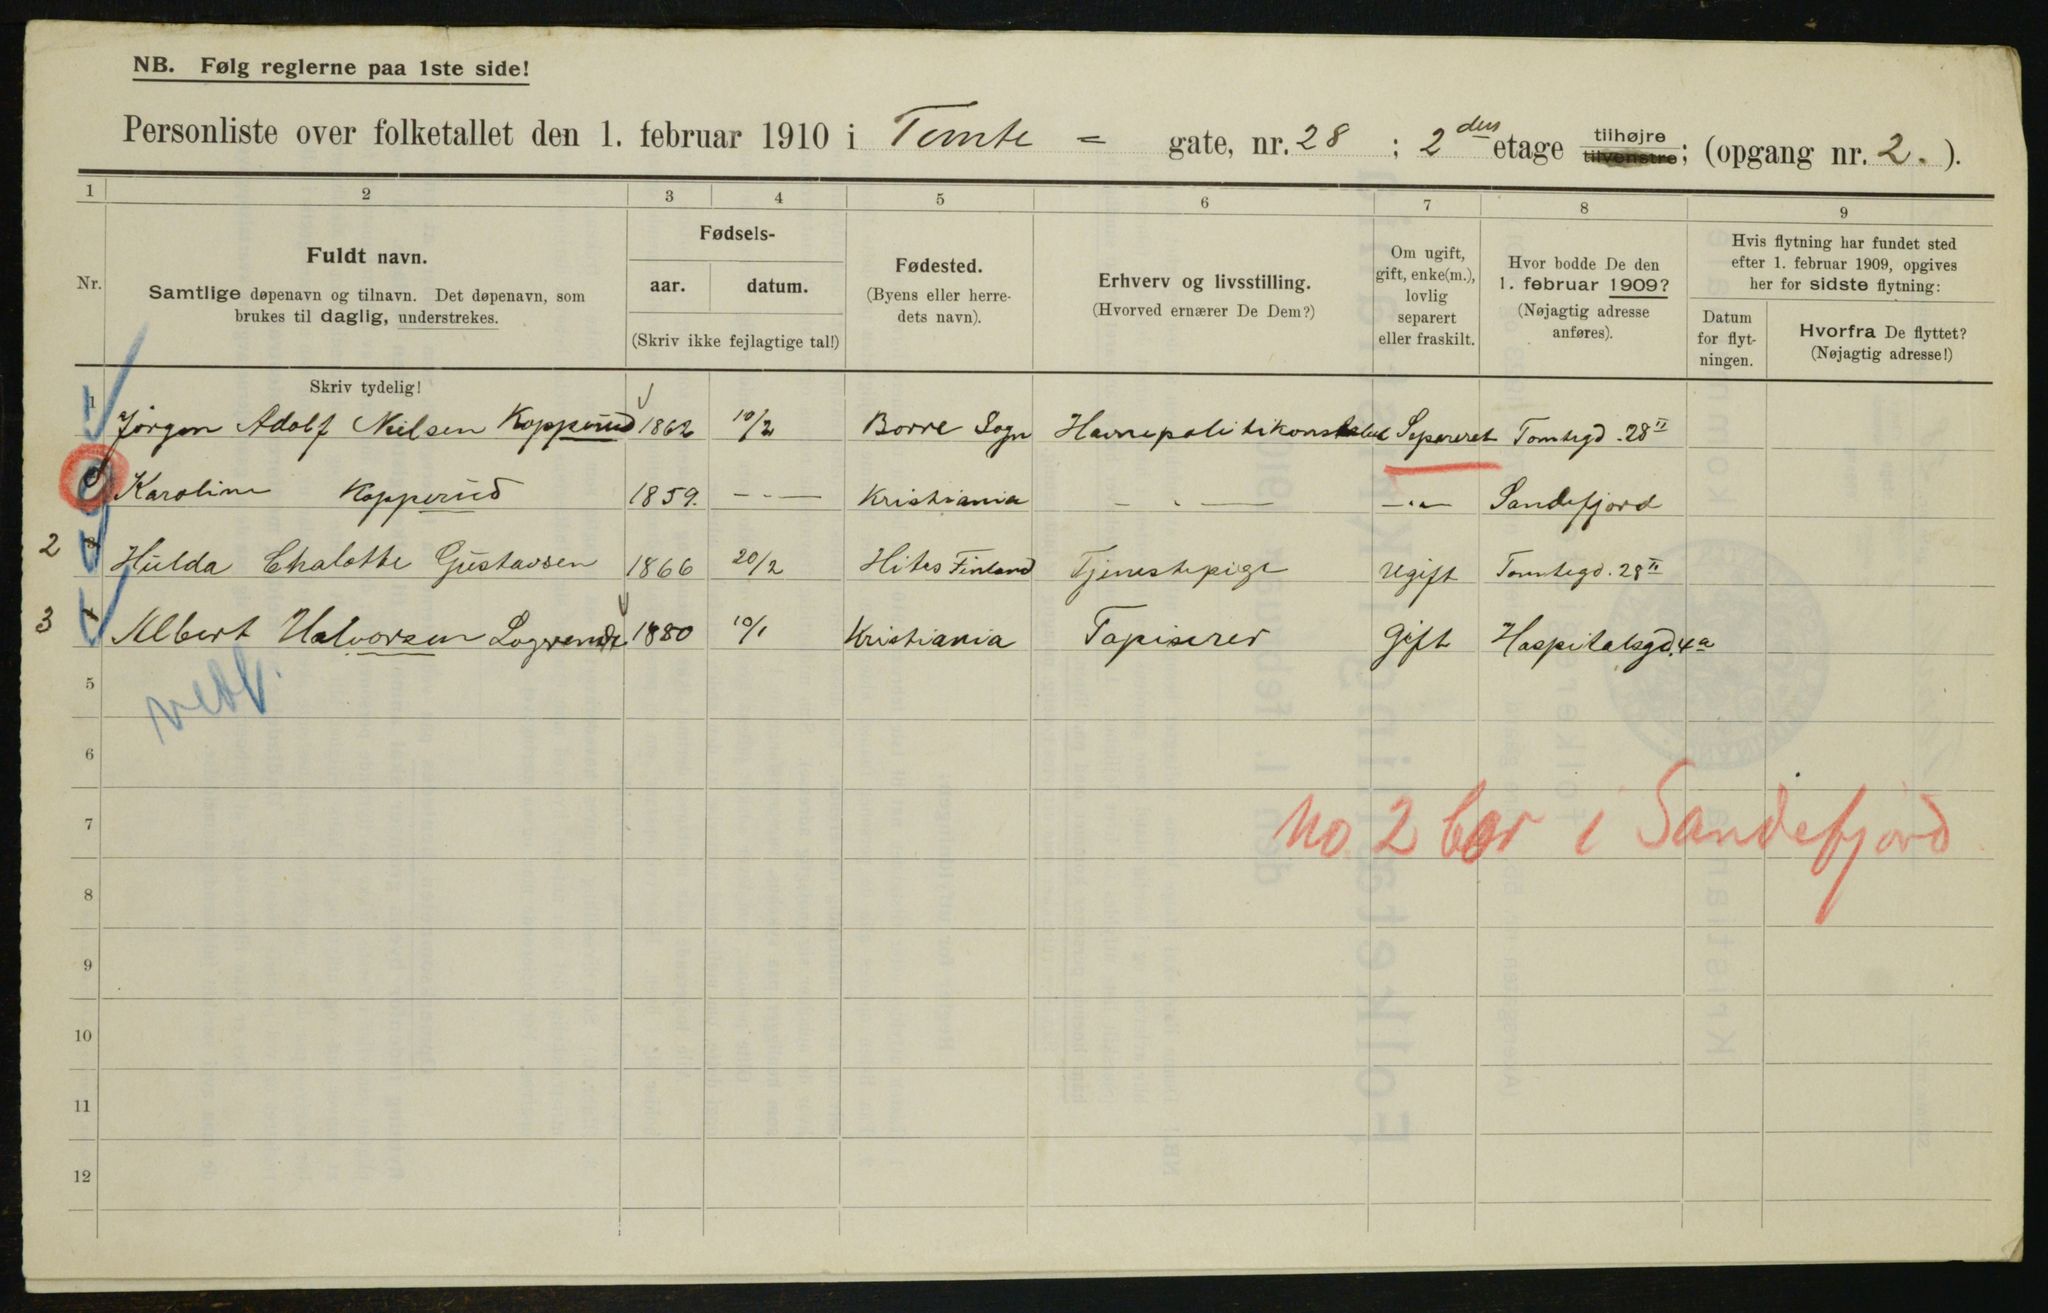 NB. Følg reglerne paa 1ste side!
Personliste over folketallet den 1. februar 1910 i Tomte = gate, nr. 28 ; 2 den etage tilhøjre tilvenstre; (opgang nr. 2. ).
1 2 3 4 5 6 7 8 9
Nr.
Fuldt navn.
Samtlige døpenavn og tilnavn. Det døpenavn, som
brukes til daglig, understrekes.
Fødsels-
aar. datum.
(Skriv ikke fejlagtige tal!)
Fødested.
(Byens eller herre-
dets navn).
Erhverv og livsstilling.
(Hvorved ernærer De Dem?)
Om ugift,
gift, enke(m.),
lovlig
separert
eller fraskilt.
Hvor bodde De den
1. februar 1909?
(Nøjagtig adresse
anføres).
Hvis flytning har fundet sted
efter 1. februar 1909, opgives
her for sidste flytning:
Datum
for flyt-
ningen.
Hvorfra De flyttet?
(Nøjagtig adresse!)
Skriv tydelig!
1 Jörgen Adolf Nielsen Kopperud 1862 10/2 Borre Sogn Havnepolitikonstabel Separeret Tomtegd. 28 II
Karoline Kopperud 1859. — " — Kristiania — " — — " — Sandefjord
2 Hulda Chalotte Gustavsen 1866 20/2 Hitis Finland Tjenestepige Ugift Tomtegd. 28 II
3 Albert Halvorsen 1880 10/1 Kristiania Tapiserer Gift Hospitalsgd. 4a
5
6
No 2 bor i Sandefjord
7
8
9
10
11
12